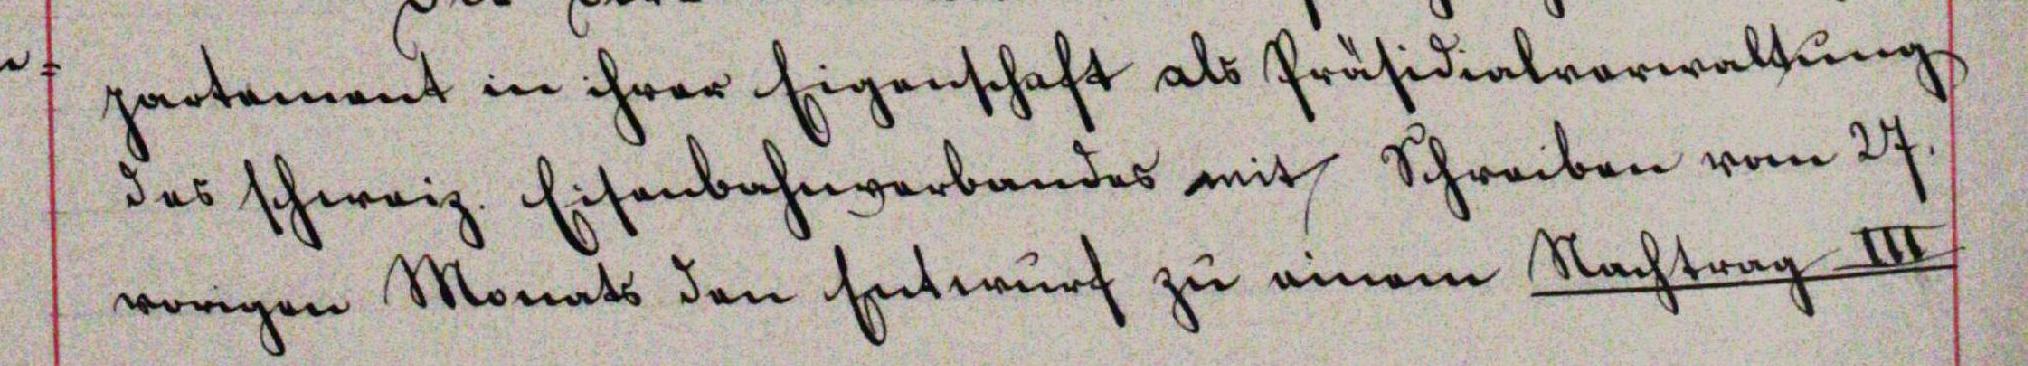 partement in ihrer Eigenschaft als Präsidialverwaltung
des schweiz. Eisenbahnverbandes mit Schreiben vom 27.
vorigen Monats den Entwurf zu einem Nachtrag III